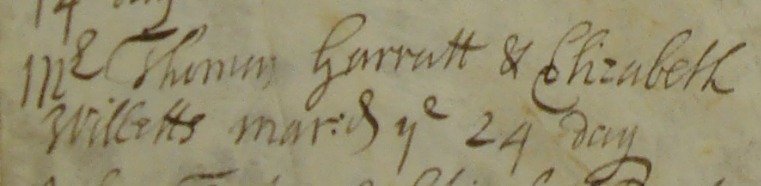 14 day
Mr Thomas Garratt & Elizabeth
Willetts mar:d ye 24 day